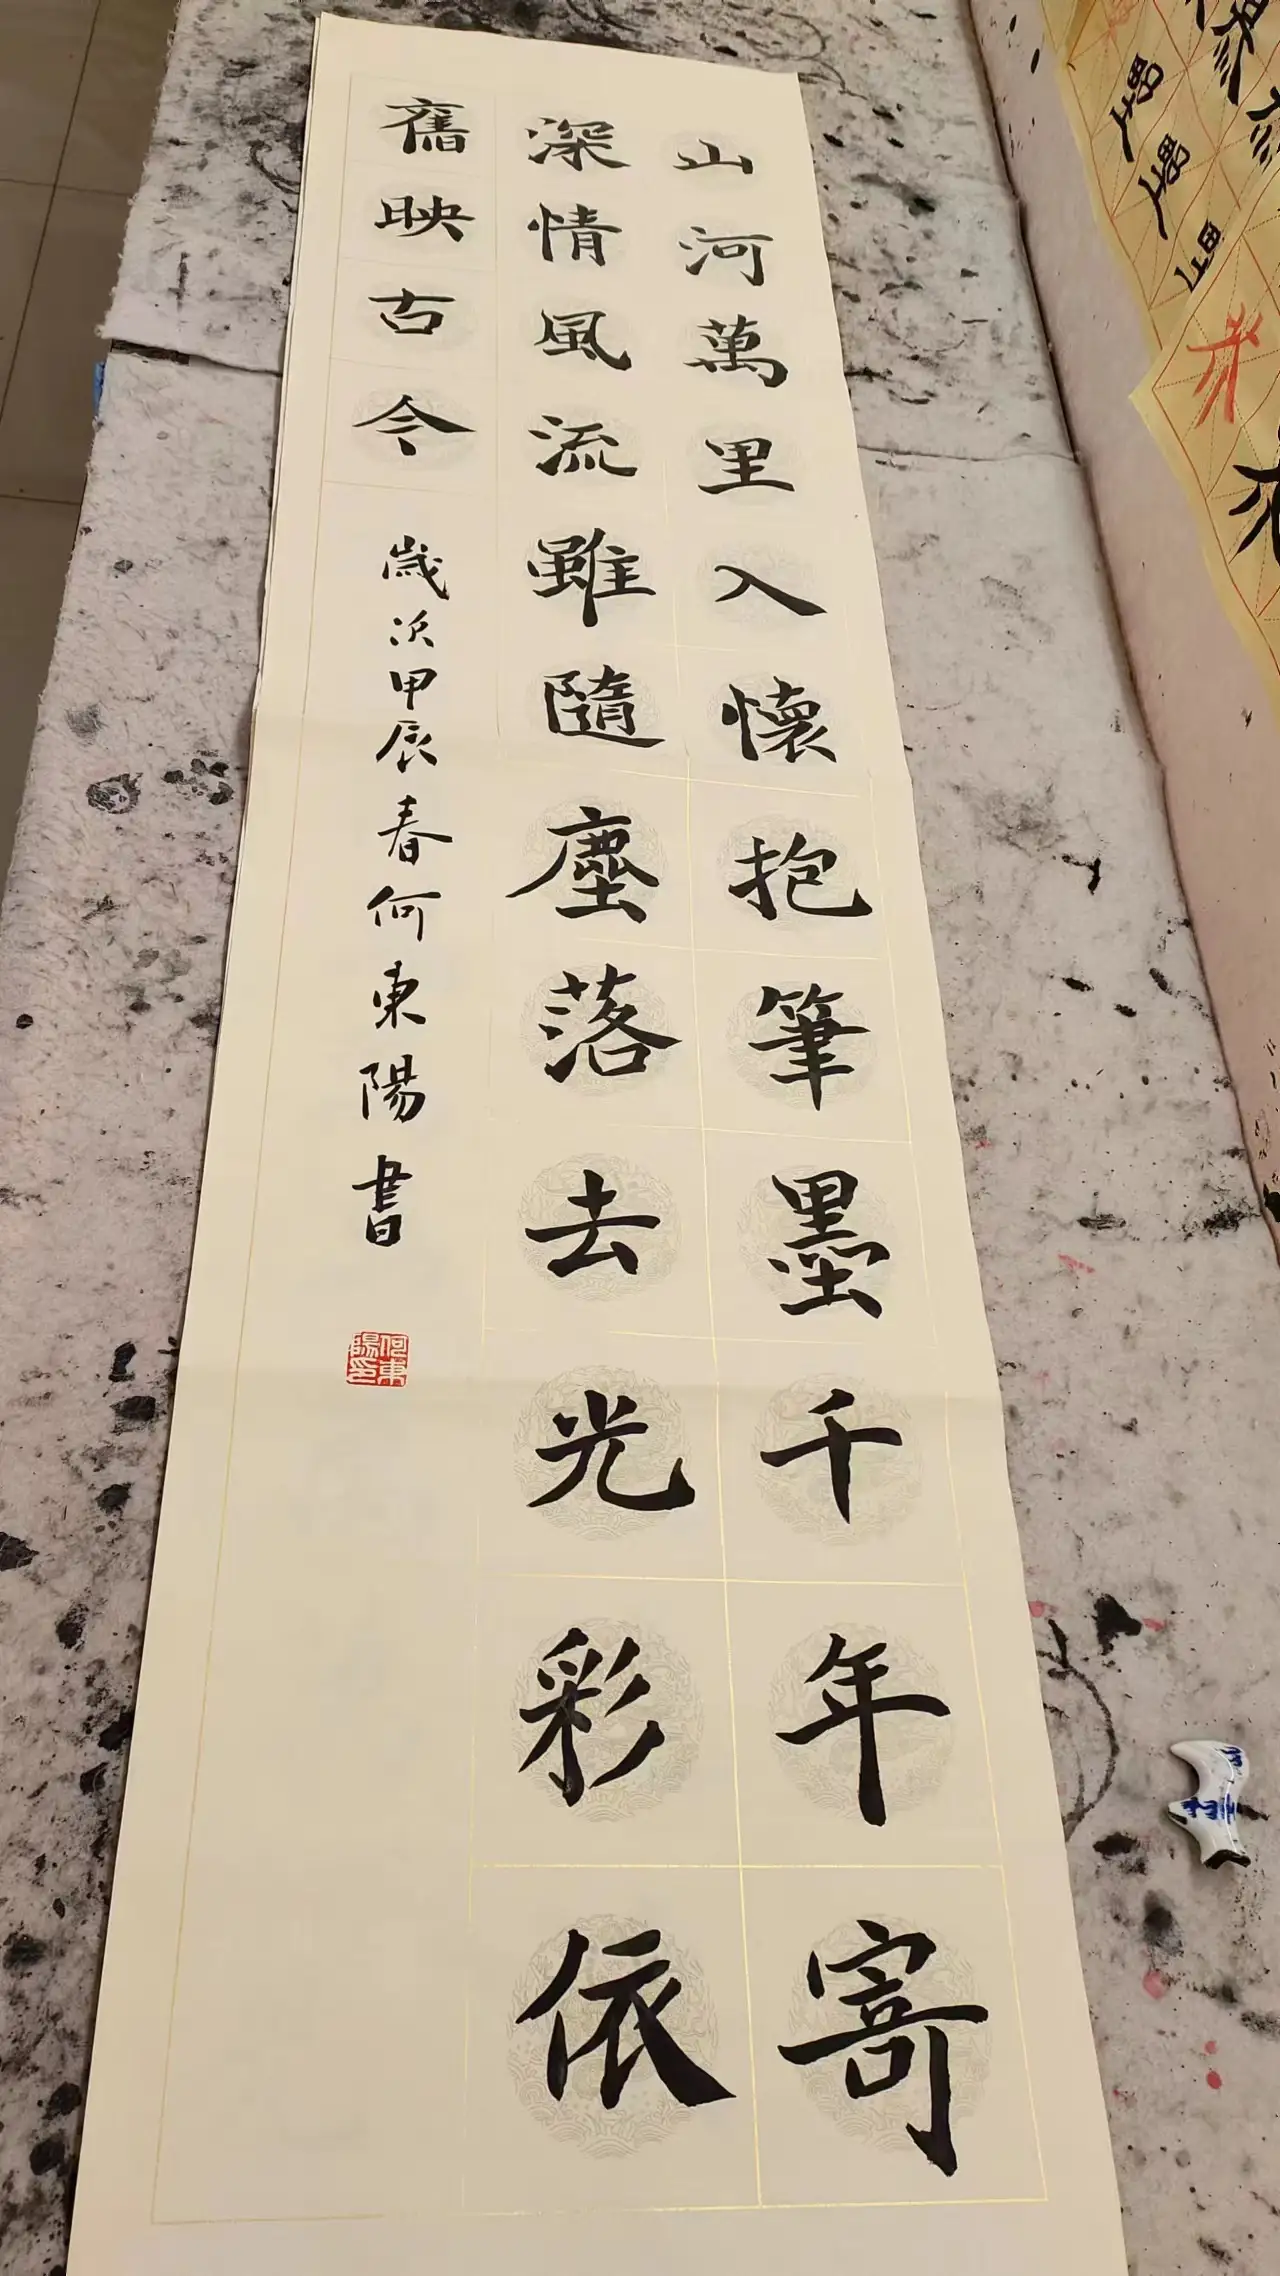 山河萬里入懷抱筆墨千年寄
深情風流雖隨塵落去光彩依
舊映古今
歲次甲辰春何東陽書
何東陽印